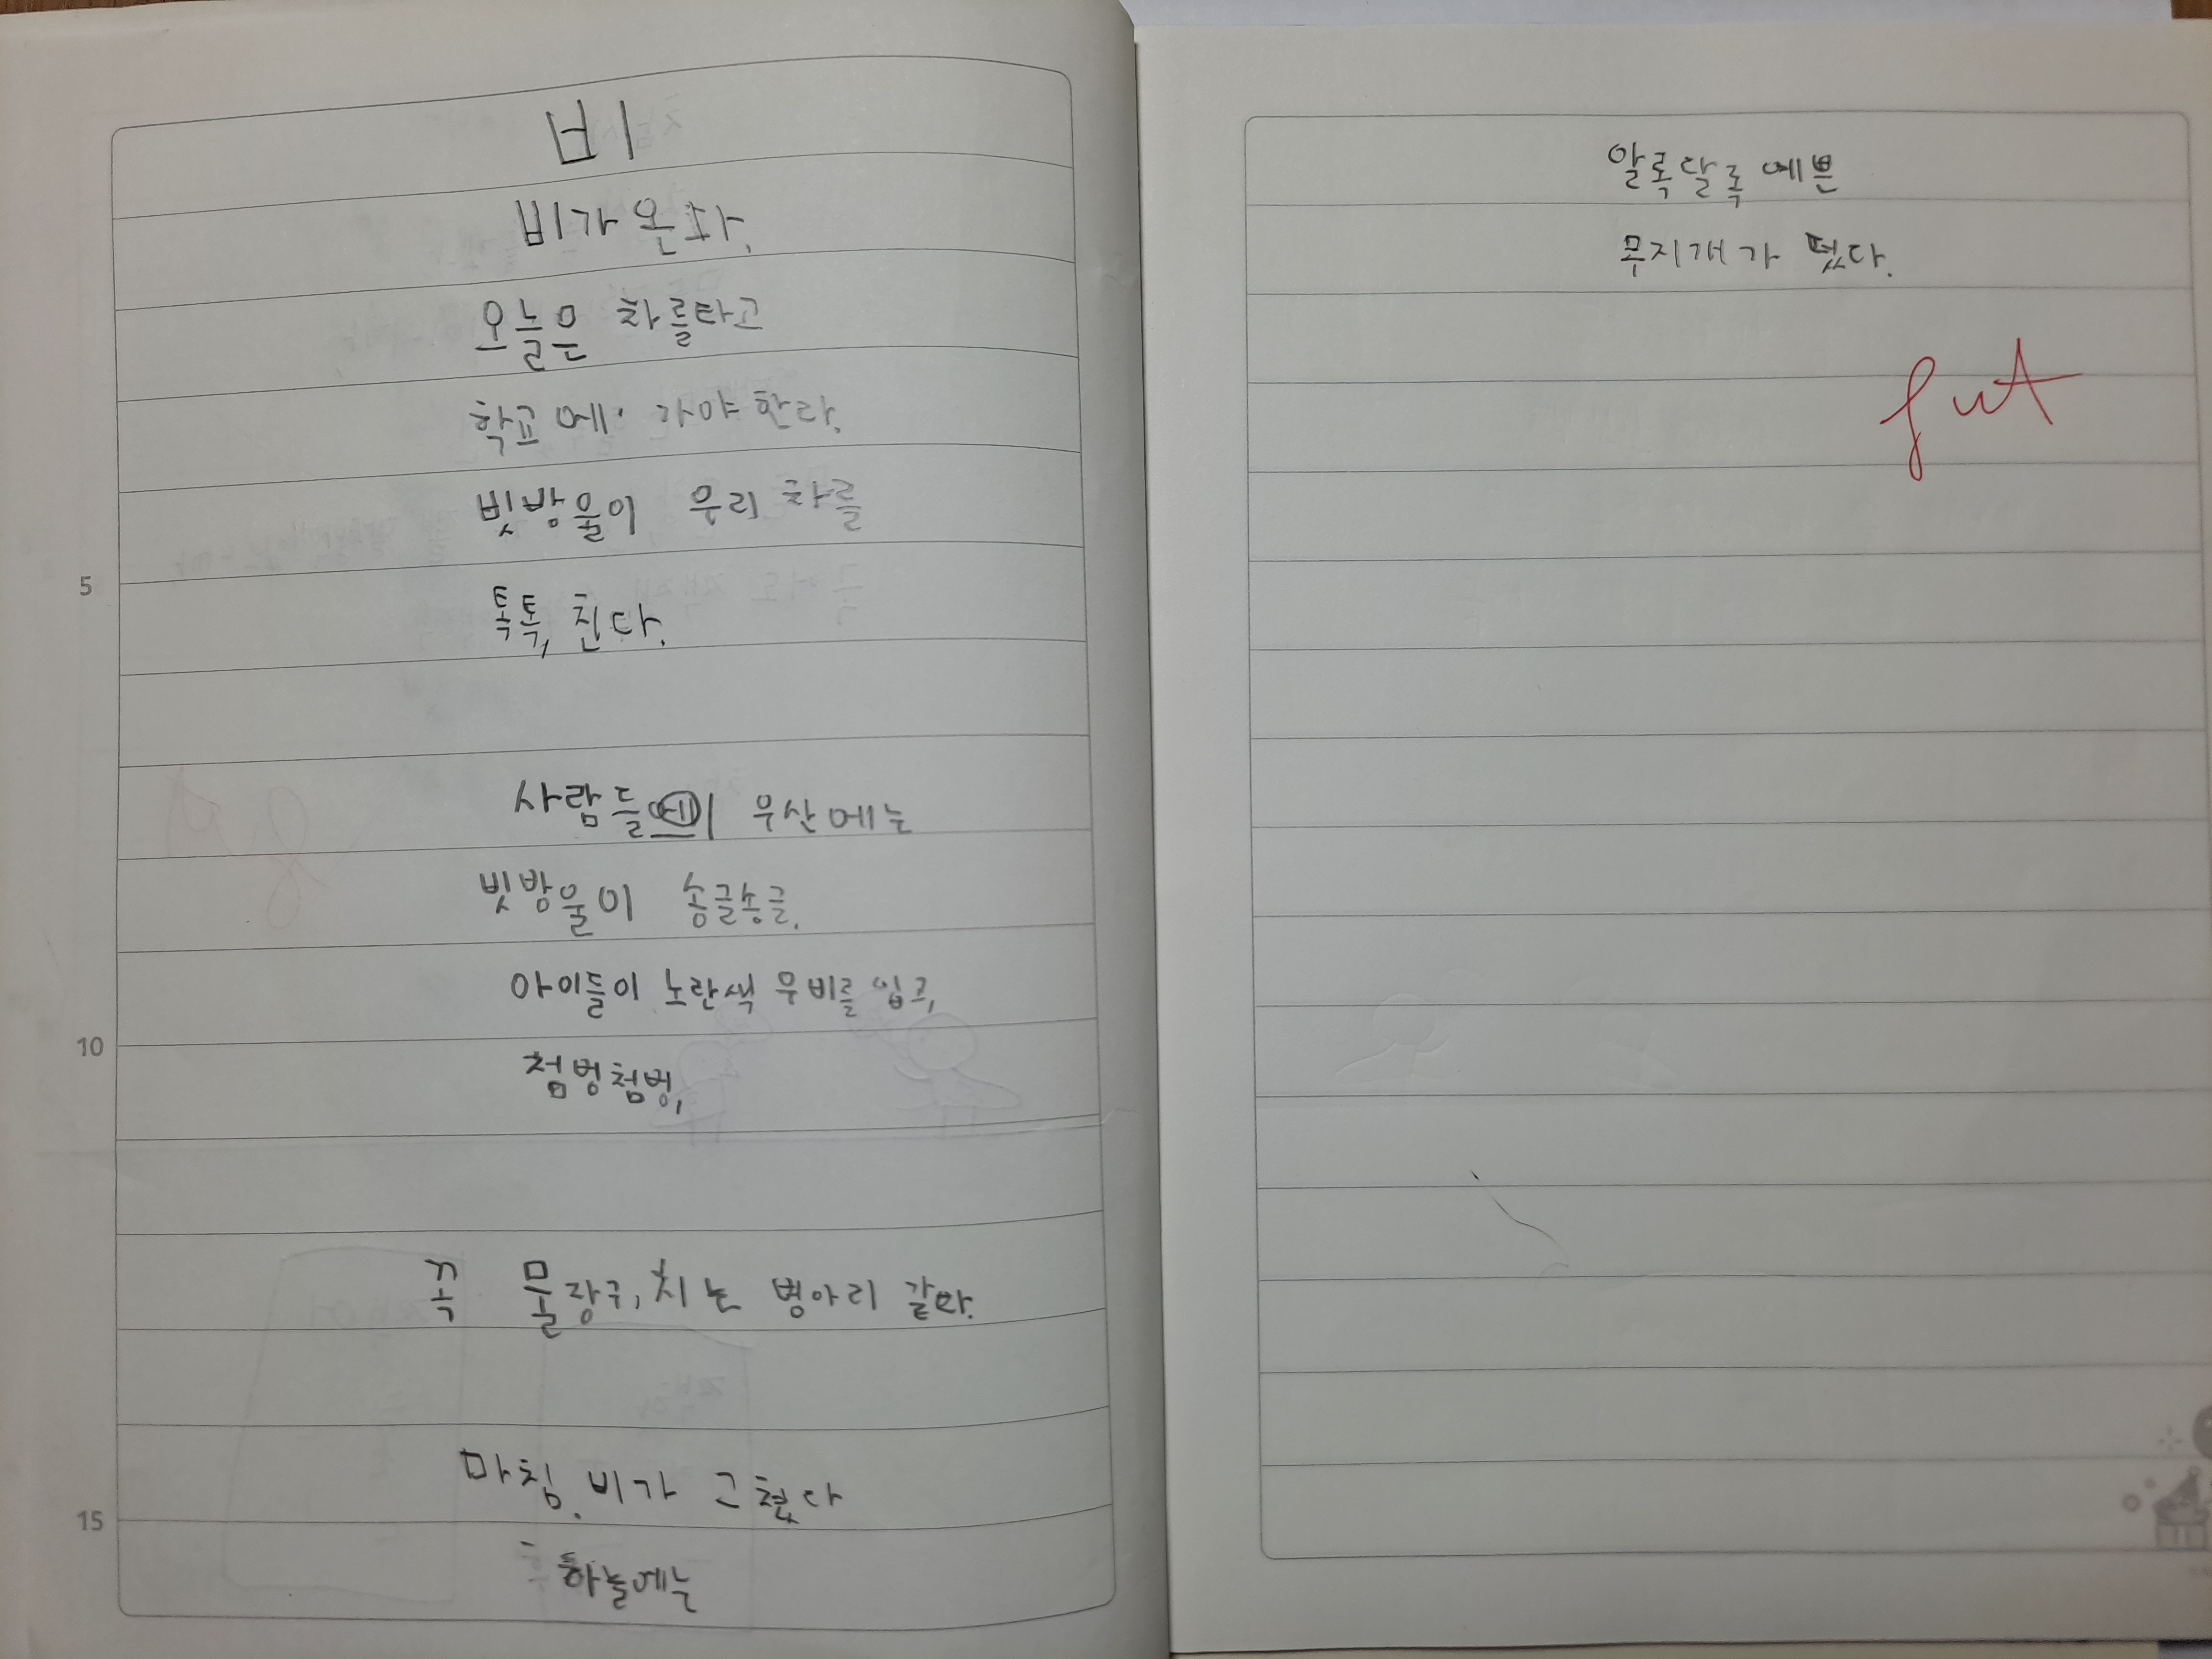 비
비가 온다.
오늘은 차를타고
학교에 가야한다.
빗방울이 우리 차를
톡톡, 친다.
5
사람들에 우산에는
빗방울이 송글송글,
아이들이 노란색 우비를 입고,
10
첨벙첨벙,
꼭 물장구, 치는 병아리 같다.
마침, 비가 그쳤다
15
하늘에는
알록달록 예쁜
무지개가 떴다.